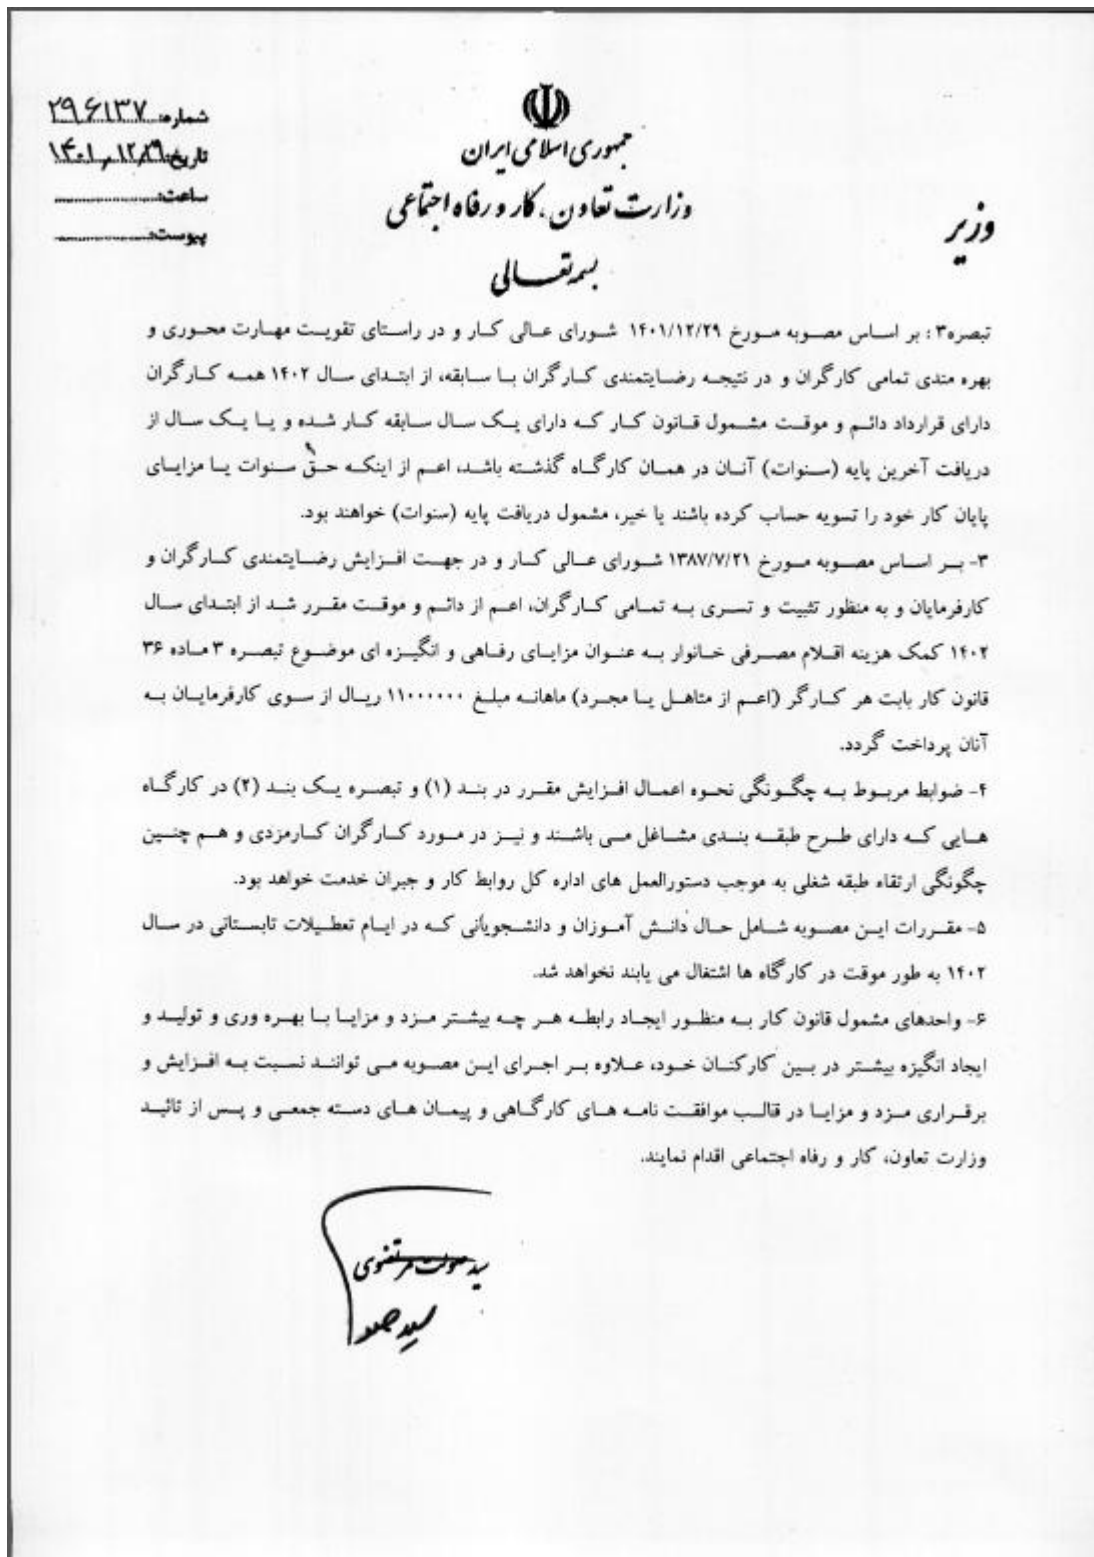 شماره: ۲۹۶۱۳۷
تاریخ: ۱۴۰۱،۱۲/۲۹
ساعت:
پیوست:
جمهوری اسلامی ایران
وزارت تعاون، کار و رفاه اجتماعی
وزیر
بسمه تعالی
تبصره۳: بر اساس مصوبه مورخ ۱۴۰۱/۱۲/۲۹ شورای عالی کار و در راستای تقویت مهارت محوری و
بهره مندی تمامی کارگران و در نتیجه رضایتمندی کارگران با سابقه، از ابتدای سال ۱۴۰۲ همه کارگران
دارای قرارداد دائم و موقت مشمول قانون کار که دارای یک سال سابقه کار شده و یا یک سال از
دریافت آخرین پایه (سنوات) آنان در همان کارگاه گذشته باشد، اعم از اینکه حق سنوات یا مزایای
پایان کار خود را تسویه حساب کرده باشند یا خیر، مشمول دریافت پایه (سنوات) خواهند بود.
۳- بر اساس مصوبه مورخ ۱۳۸۷/۷/۲۱ شورای عالی کار و در جهت افزایش رضایتمندی کارگران و
کارفرمایان و به منظور تثبیت و تسری به تمامی کارگران، اعم از دائم و موقت مقرر شد از ابتدای سال
۱۴۰۲ کمک هزینه اقلام مصرفی خانوار به عنوان مزایای رفاهی و انگیزه ای موضوع تبصره ۳ ماده ۳۶
قانون کار بابت هر کارگر (اعم از متاهل یا مجرد) ماهانه مبلغ ۱۱۰۰۰۰۰۰ ریال از سوی کارفرمایان به
آنان پرداخت گردد.
۴- ضوابط مربوط به چگونگی نحوه اعمال افزایش مقرر در بند (۱) و تبصره یک بند (۲) در کارگاه
هایی که دارای طرح طبقه بندی مشاغل می باشند و نیز در مورد کارگران کارمزدی و هم چنین
چگونگی ارتقاء طبقه شغلی به موجب دستورالعمل های اداره کل روابط کار و جبران خدمت خواهد بود.
۵- مقررات این مصوبه شامل حال دانش آموزان و دانشجویانی که در ایام تعطیلات تابستانی در سال
۱۴۰۲ به طور موقت در کارگاه ها اشتغال می یابند نخواهد شد.
۶- واحدهای مشمول قانون کار به منظور ایجاد رابطه هر چه بیشتر مزد و مزایا با بهره وری و تولید و
ایجاد انگیزه بیشتر در بین کارکنان خود، علاوه بر اجرای این مصوبه می توانند نسبت به افزایش و
برقراری مزد و مزایا در قالب موافقت نامه های کارگاهی و پیمان های دسته جمعی و پس از تائید
وزارت تعاون، کار و رفاه اجتماعی اقدام نمایند.
سید صولت مرتضوی